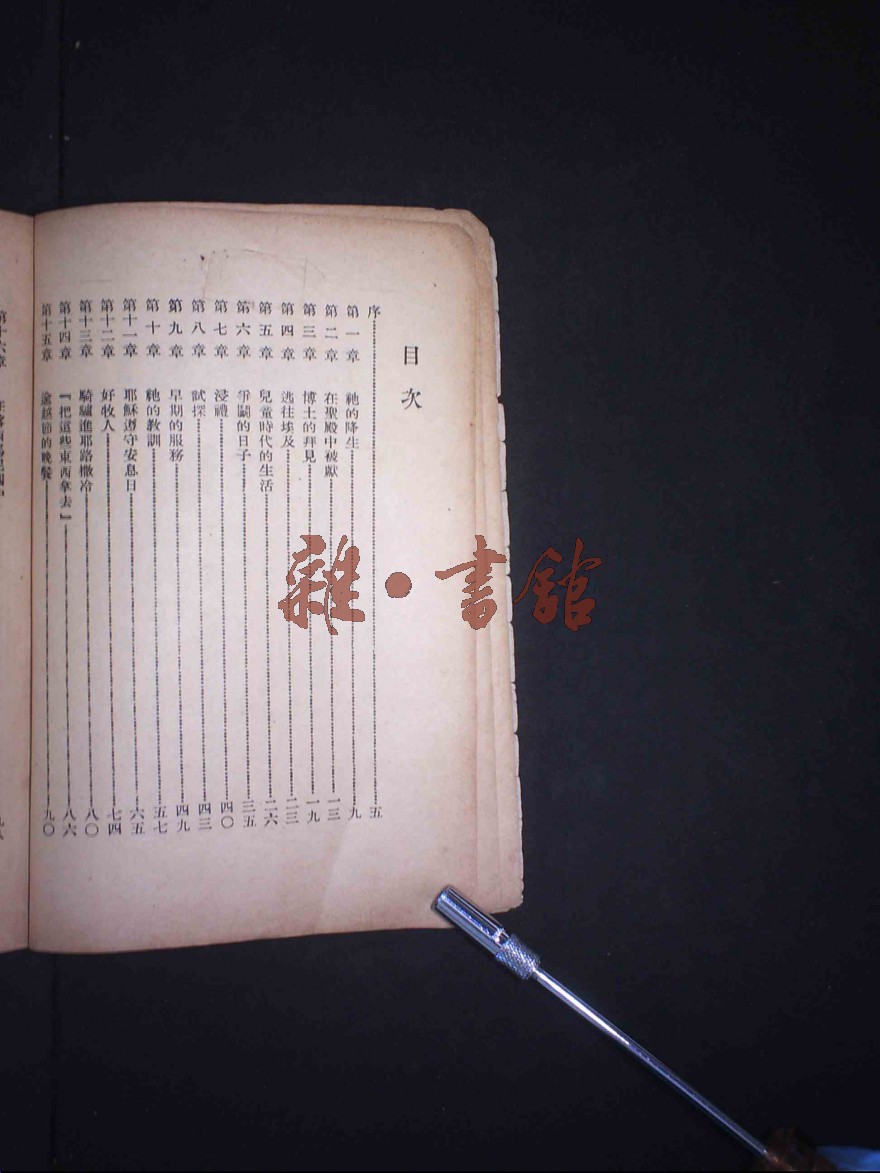 目次
序 五
第一章 祂的降生 九
第二章 在聖殿中被獻 一三
第三章 博士的拜見 一九
第四章 逃往埃及 二三
第五章 兒童時代的生活 二六
第六章 爭鬬的日子 三五
第七章 浸禮 四〇
第八章 試探 四三
第九章 早期的服務 四九
第十章 祂的教訓 五七
第十一章 耶穌遵守安息日 六五
第十二章 好牧人 七四
第十三章 騎驢進耶路撒冷 八〇
第十四章 『把這些東西拿去』 八六
第十五章 逾越節的晚餐 九〇
第十六章
雜·書館